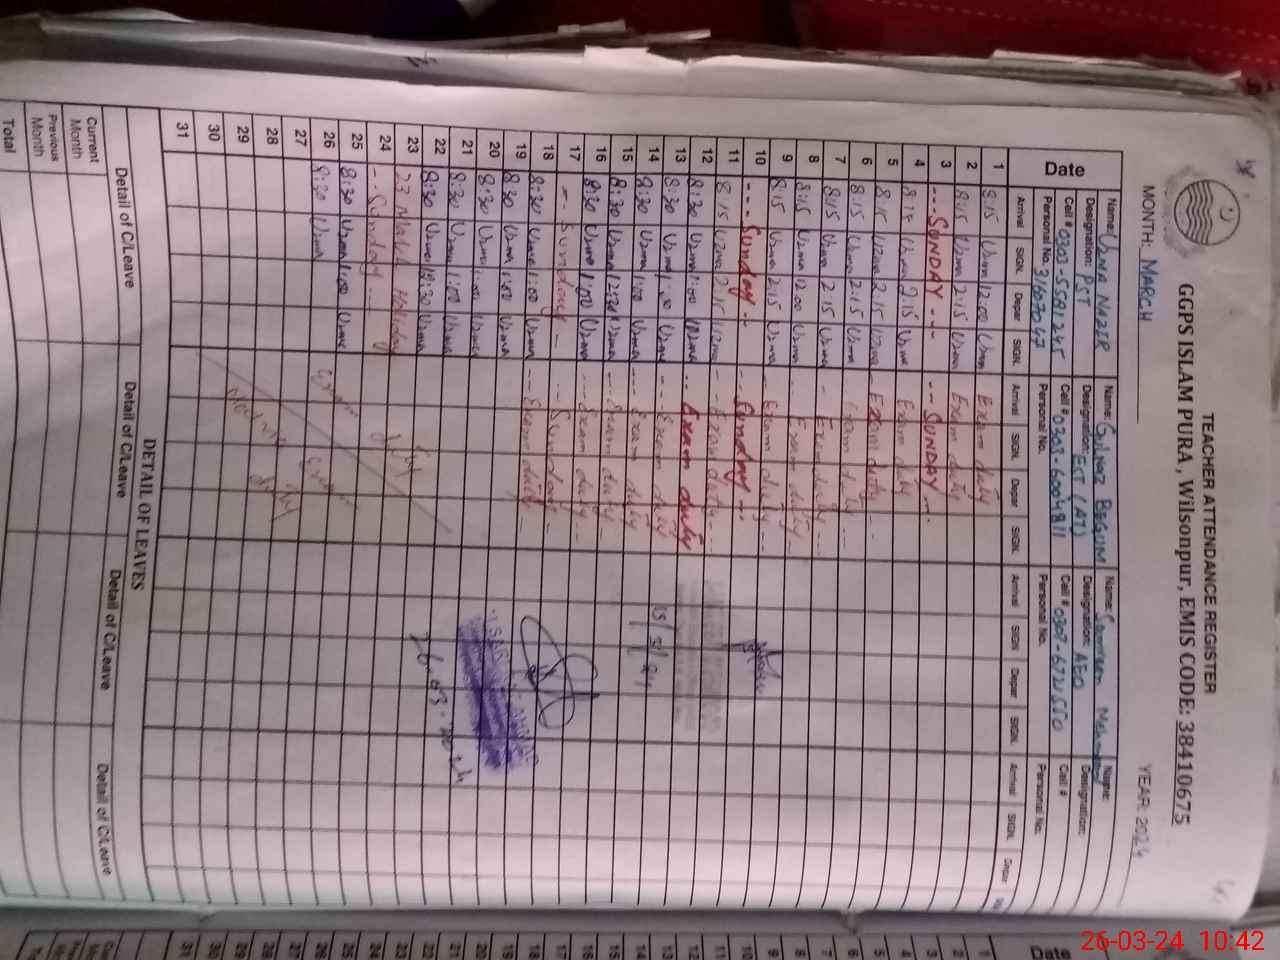 TEACHER ATTENDANCE REGISTER
GGPS ISLAM PURA, Wilsonpur, EMIS CODE: 38410675
MONTH: MARCH YEAR: 2024
Date
Name: Uzma NAZIR Name: Gulnaz BEGUM Name: Name:
Designation: PST Designation: EST (AT) Designation: AEO Designation:
Cell # 0303-5591245 Cell # 0303-6004811 Cell # Cell #
Personal No. 31603047 Personal No. Personal No. Personal No.
Arrival SIGN. Depar SIGN. Arrival SIGN. Depar SIGN. Arrival SIGN. Depar SIGN. Arrival SIGN. Depar
1 8:15 Uzma 12:00 Uzma Exam duty
2 8:15 Uzma 2:15 Uzma Exam duty
3 --- SUNDAY --- -- SUNDAY --
4 Uzma 2:15 Uzma Exam duty
5 8:15 Uzma 2:15 Uzma Exam duty --
6 8:15 Uzma 2:15 Uzma Exam duty ---
7 8:15 Uzma 2:15 Uzma - Exam duty ---
8 8:15 Uzma 12:00 Uzma -- Exam duty --
9 8:15 Uzma 2:15 Uzma -- Exam duty ---
10 --- Sunday -- --- Sunday ---
11 8:15 Uzma 2:15 Uzma - Exam duty ---
12 8:30 Uzma 1:00 Uzma -- Exam duty
13 8:30 Uzma 1:00 Uzma -- Exam duty
14 8:30 Uzma 1:00 Uzma -- Exam duty
15 8:30 Uzma 12:30 Uzma -- Exam duty --
16 8:30 Uzma 1:00 Uzma --- Exam duty --
17 -- Sunday -- --- Sunday --
18 8:30 Uzma 1:00 Uzma --- Exam duty ---
19 8:30 Uzma 1:00 Uzma
20 8:30 Uzma 1:00 Uzma
21 8:30 Uzma 1:00 Uzma
22 8:30 Uzma 12:30 Uzma
23 23 March Holiday
24 --- Sunday ---
25 8:30 Uzma 1:00 Uzma
26 8:30 Uzma
27
28
29
30
31
26.03.2024
DETAIL OF LEAVES
Detail of C/Leave Detail of C/Leave Detail of C/Leave Detail of C/Leave
Current Month
Previous Month
Total
26-03-24 10:42